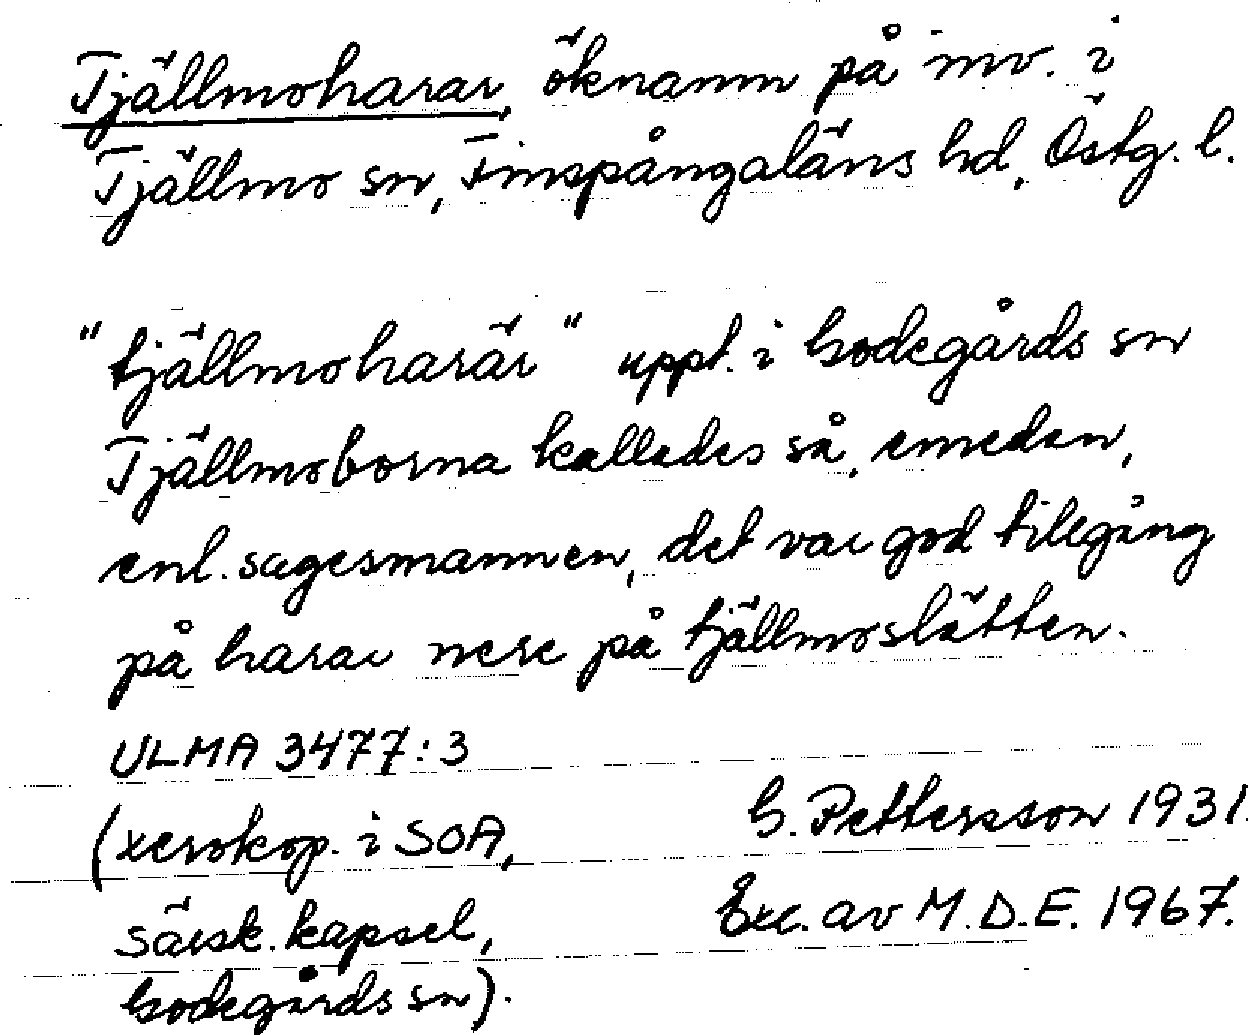 Tjällmoharar, öknamn på inv. i
Tjällmo sn, Finspångaläns hd, Östg. l.
"tjällmoharär" uppt. i Godegårds sn
Tjällmoborna kallades så, emedan,
enl. sagesmannen, det var god tillgång
på harar nere på tjällmoslätten.
ULMA 3477:3
(xerokop. i SOA, G. Pettersson 1931.
särsk. kapsel, Exc. av M.D.E. 1967.
Godegårds sn).